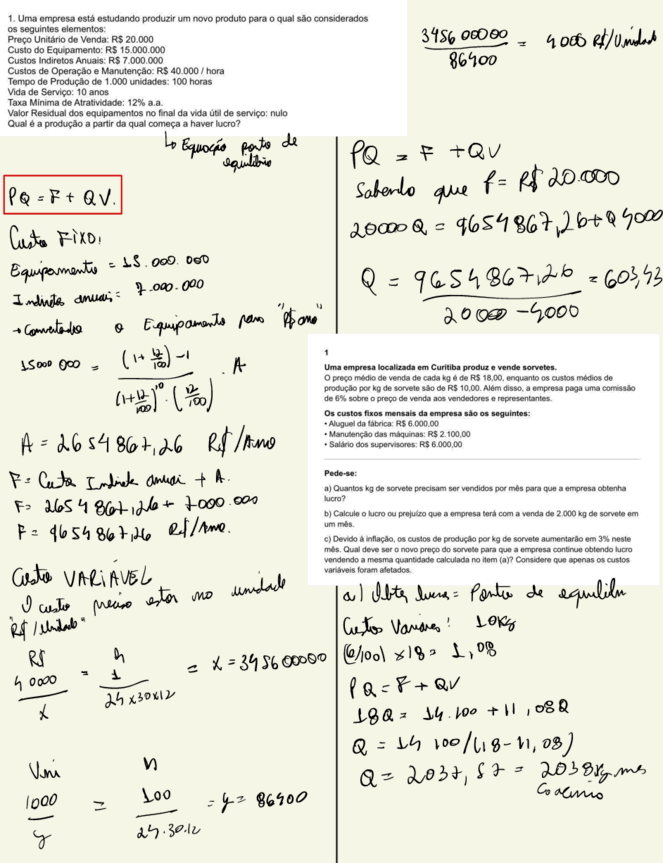 1. Uma empresa está estudando produzir um novo produto para o qual são considerados
os seguintes elementos:
Preço Unitário de Venda: R$ 20.000
Custo do Equipamento: R$ 15.000.000
Custos Indiretos Anuais: R$ 7.000.000
Custos de Operação e Manutenção: R$ 40.000 / hora
Tempo de Produção de 1.000 unidades: 100 horas
Vida de Serviço: 10 anos
Taxa Mínima de Atratividade: 12% a.a.
Valor Residual dos equipamentos no final da vida útil de serviço: nulo
Qual é a produção a partir da qual começa a haver lucro?
↳ Equação ponto de
equilíbrio
PQ = F + QV.
Custo FIXO:
Equipamento = 15.000.000
Indiretos anuais = 7.000.000
→ Convertendo o Equipamento para "R$/ano"
15000 000 = (1+12/100)-1 / (1+12/100)^10 . (12/100) . A
A = 2654867,26 R$/Ano
F = Custo Indireto anuai + A.
F = 2654867,26 + 7000.000
F = 9654867,26 R$/Ano.
Custo VARIÁVEL
O custo preciso estar no unidade
"R$/Unidade"
R$ h
40000 / x = 1 / 24x30x12 = x = 345600000
Uni h
1000 / y = 100 / 24.30.12 = y = 86400
345600000 / 86400 = 4000 R$/Unidade
PQ = F + QV
Sabendo que P = R$ 20.000
20000Q = 9654867,26 + Q4000
Q = 9654867,26 / 20000-4000 = 603,43
1
Uma empresa localizada em Curitiba produz e vende sorvetes.
O preço médio de venda de cada kg é de R$ 18,00, enquanto os custos médios de
produção por kg de sorvete são de R$ 10,00. Além disso, a empresa paga uma comissão
de 6% sobre o preço de venda aos vendedores e representantes.
Os custos fixos mensais da empresa são os seguintes:
• Aluguel da fábrica: R$ 6.000,00
• Manutenção das máquinas: R$ 2.100,00
• Salário dos supervisores: R$ 6.000,00
Pede-se:
a) Quantos kg de sorvete precisam ser vendidos por mês para que a empresa obtenha
lucro?
b) Calcule o lucro ou prejuízo que a empresa terá com a venda de 2.000 kg de sorvete em
um mês.
c) Devido à inflação, os custos de produção por kg de sorvete aumentarão em 3% neste
mês. Qual deve ser o novo preço do sorvete para que a empresa continue obtendo lucro
vendendo a mesma quantidade calculada no item (a)? Considere que apenas os custos
variáveis foram afetados.
a) Obter lucro = Ponto de equilíbrio
Custos Variáveis: 10kg
(6/100) x18 = 1,08
PQ = F + QV
18Q = 14.100 + 11,08Q
Q = 14 100/(18-11,08)
Q = 2037,57 = 2038kg mes